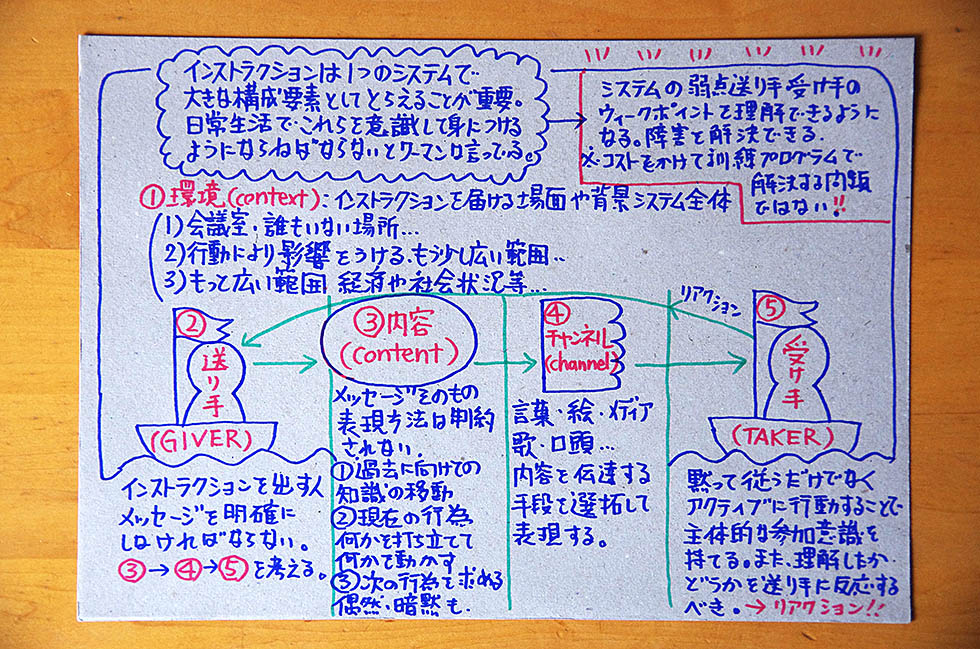 インストラクションは1つのシステムで
大きな構成要素としてとらえることが重要。
日常生活でこれらを意識して身につける
ようにならねばならないとワーマンは言ってる。
システムの弱点送り手受け手の
ウィークポイントを理解できるように
なる。障害を解決できる.
※コストをかけて訓練プログラムで
解決する問題
ではない!!
①環境(context):インストラクションを届ける場面や背景システム全体
1)会議室・誰もいない場所…
2)行動により影響をうける、もう少し広い範囲…
3)もっと広い範囲 経済や社会状況等…
リアクション
②
送り手
(GIVER)
インストラクションを出す人
メッセージを明確に
しなければならない。
③→④→⑤を考える。
③内容
(content)
メッセージそのもの
表現方法は制約
されない.
①過去に向けての
知識の移動
②現在の行為
何かを打ち立てて
何かで動かす
③次の行為を求める
偶然・暗黙も.
④
チャンネル
(channel)
言葉・絵・メディア
歌・口頭…
内容を伝達する
手段を選択して
表現する。
⑤
受け手
(TAKER)
黙って従うだけでなく
アクティブに行動することで
主体的な参加意識を
持てる。また、理解したか
どうかを送り手に反応する
べき。→リアクション!!